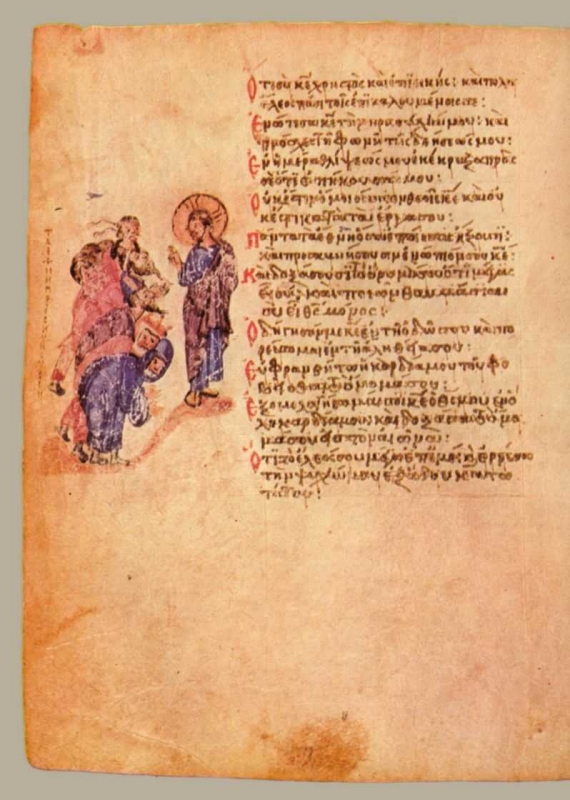 Ὅτι σὺ κε χρηστὸς καὶ ἐπιεικής: καὶ πολυ
έλεος πᾶσι τοῖς ἐπικαλουμένοις σε:
Ἐνώτισαι κε τὴν προσευχήν μου: καὶ
πρόσχες τῇ φωνῇ τῆς δεήσεώς μου:
Ἐν ἡμέρᾳ θλίψεώς μου ἐκέκραξα πρὸς
σὲ ὅτι εἰσήκουσάς μου:
Οὐκ ἔστιν ὅμοιός σοι ἐν θεοῖς κε καὶ οὐ
κ ἔστιν κατὰ τὰ ἔργα σου:
Πάντα τὰ ἔθνη ὅσα ἐποίησας ἥξουσι:
καὶ προσκυνήσουσιν ἐνώπιόν σου κε:
Καὶ δοξάσουσι τὸ ὄνομά σου ὅτι μέγας
εἶ σύ: καὶ ποιῶν θαυμάσια
σὺ εἶ θς μόνος:
Ὁδήγησόν με κε ἐν τῇ ὁδῷ σου καὶ πο
ρεύσομαι ἐν τῇ ἀληθείᾳ σου:
Εὐφρανθήτω ἡ καρδία μου τοῦ φο
βεῖσθαι τὸ ὄνομά σου:
Ἐξομολογήσομαί σοι κε ὁ θς μου ἐν ὅ
λῃ καρδίᾳ μου: καὶ δοξάσω τὸ ὄνο
μά σου εἰς τὸν αἰῶνα:
Ὅτι τὸ ἔλεός σου μέγα ἐπ' ἐμὲ καὶ ἐρρύσω
τὴν ψυχήν μου ἐξ ᾅδου κατω
τάτου: